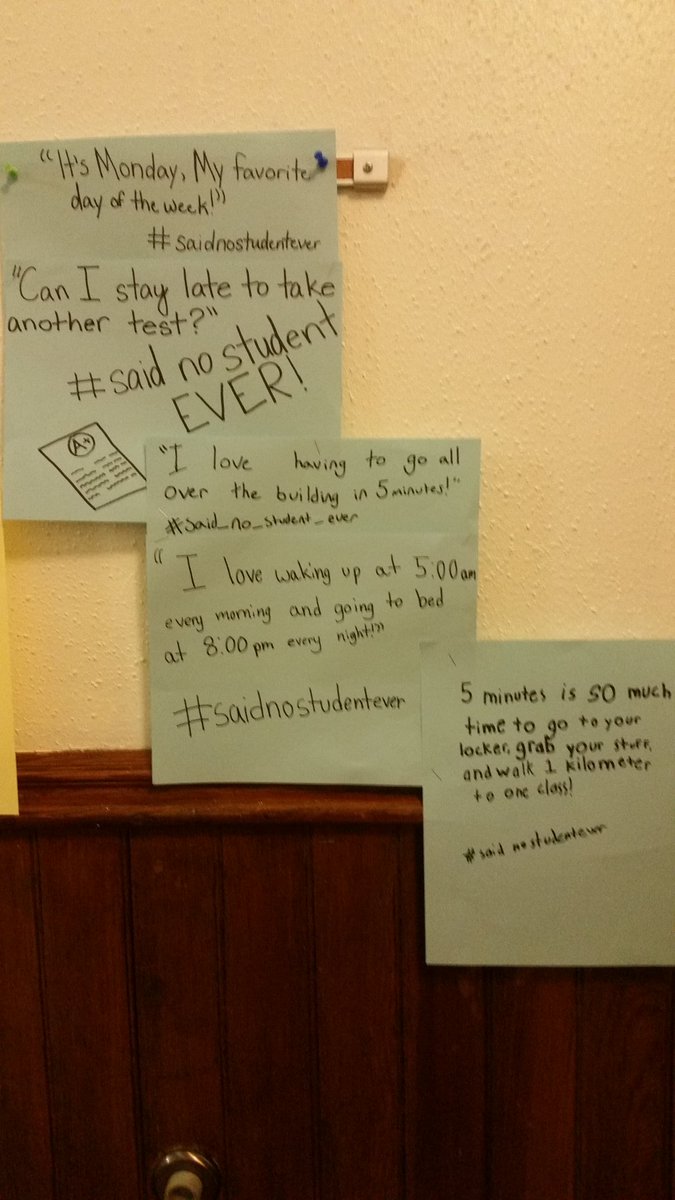 "It's Monday, My favorite
day of the week!"
#saidnostudentever
"Can I stay late to take
another test?"
#said no student
EVER!
A+
"I love having to go all
over the building in 5 minutes!"
#said_no_student_ever
"I love waking up at 5:00am
every morning and going to bed
at 8:00 pm every night!"
#saidnostudentever
5 minutes is SO much
time to go to your
locker, grab your stuff,
and walk 1 kilometer
to one class!
#said nostudentever